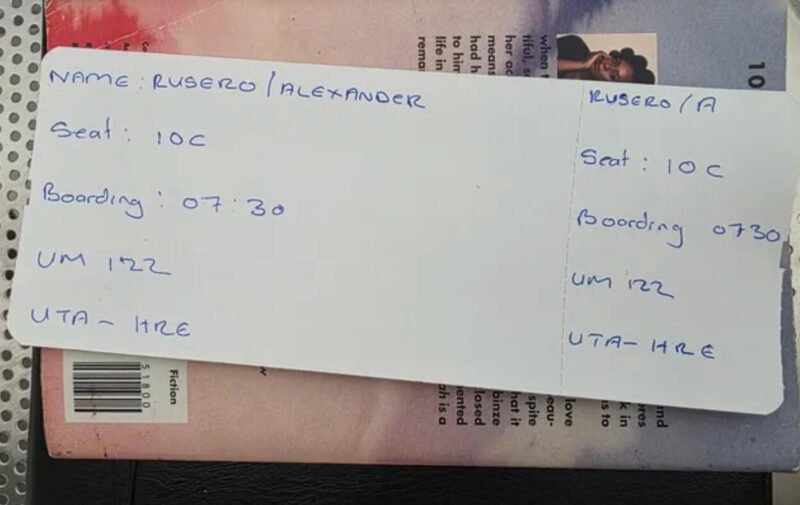 NAME: RUSERO/ALEXANDER
Seat: 10C
Boarding: 07:30
UM 122
UTA-HRE
RUSERO/A
Seat: 10C
Boarding 0730
UM 122
UTA-HRE
10
when
her
means
had h
to him
life in
love
spite
hat it
binze
closed
ented
ah is a
k in
s to
Fiction
51800